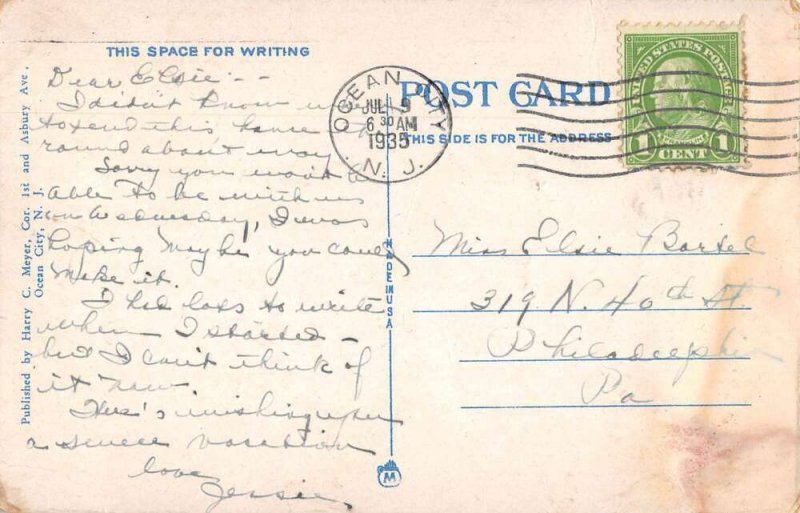 THIS SPACE FOR WRITING
Dear Elsie --
I didn't know where
to send this hence
round about way
Sorry you won't be
able to be with us
on Wednesday, I was
hoping maybe you could
make it.
I had lots to write
when I started -
but I can't think of
it now
Here's wishing you
a swell vacation
love
Jessie
Published by Harry C. Meyer, Cor. 1st and Asbury Ave.
Ocean City, N. J.
MADE IN USA
M
POST CARD
THIS SIDE IS FOR THE ADDRESS
OCEAN CITY
JUL 9
6 30 AM
1935
N. J.
UNITED STATES POSTAGE
1 CENT 1
Miss Elsie Bartel
319 N. 40th St.
Philadelphia
Pa